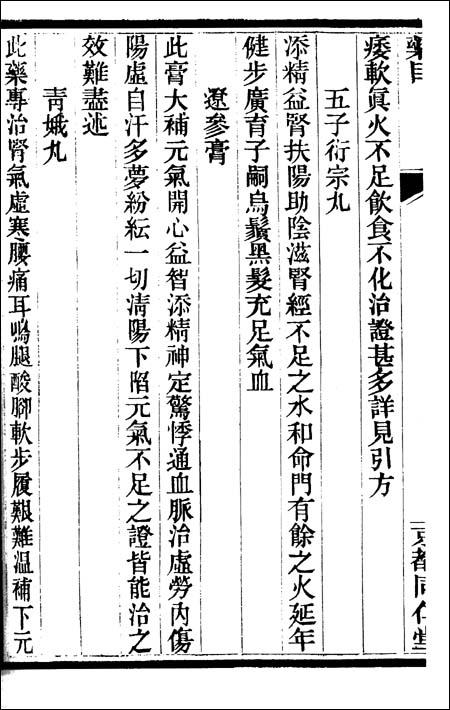 藥目
京都同仁堂
痿軟眞火不足飲食不化治證甚多詳見引方
五子衍宗丸
添精益腎扶陽助陰滋腎經不足之水和命門有餘之火延年
健步廣育子嗣烏鬚黑髮充足氣血
遼參膏
此膏大補元氣開心益智添精神定驚悸通血脈治虛勞內傷
陽虛自汗多夢紛紜一切淸陽下陷元氣不足之證皆能治之
效難盡述
靑娥丸
此藥專治腎氣虛寒腰痛耳鳴腿酸腳軟步履艱難溫補下元